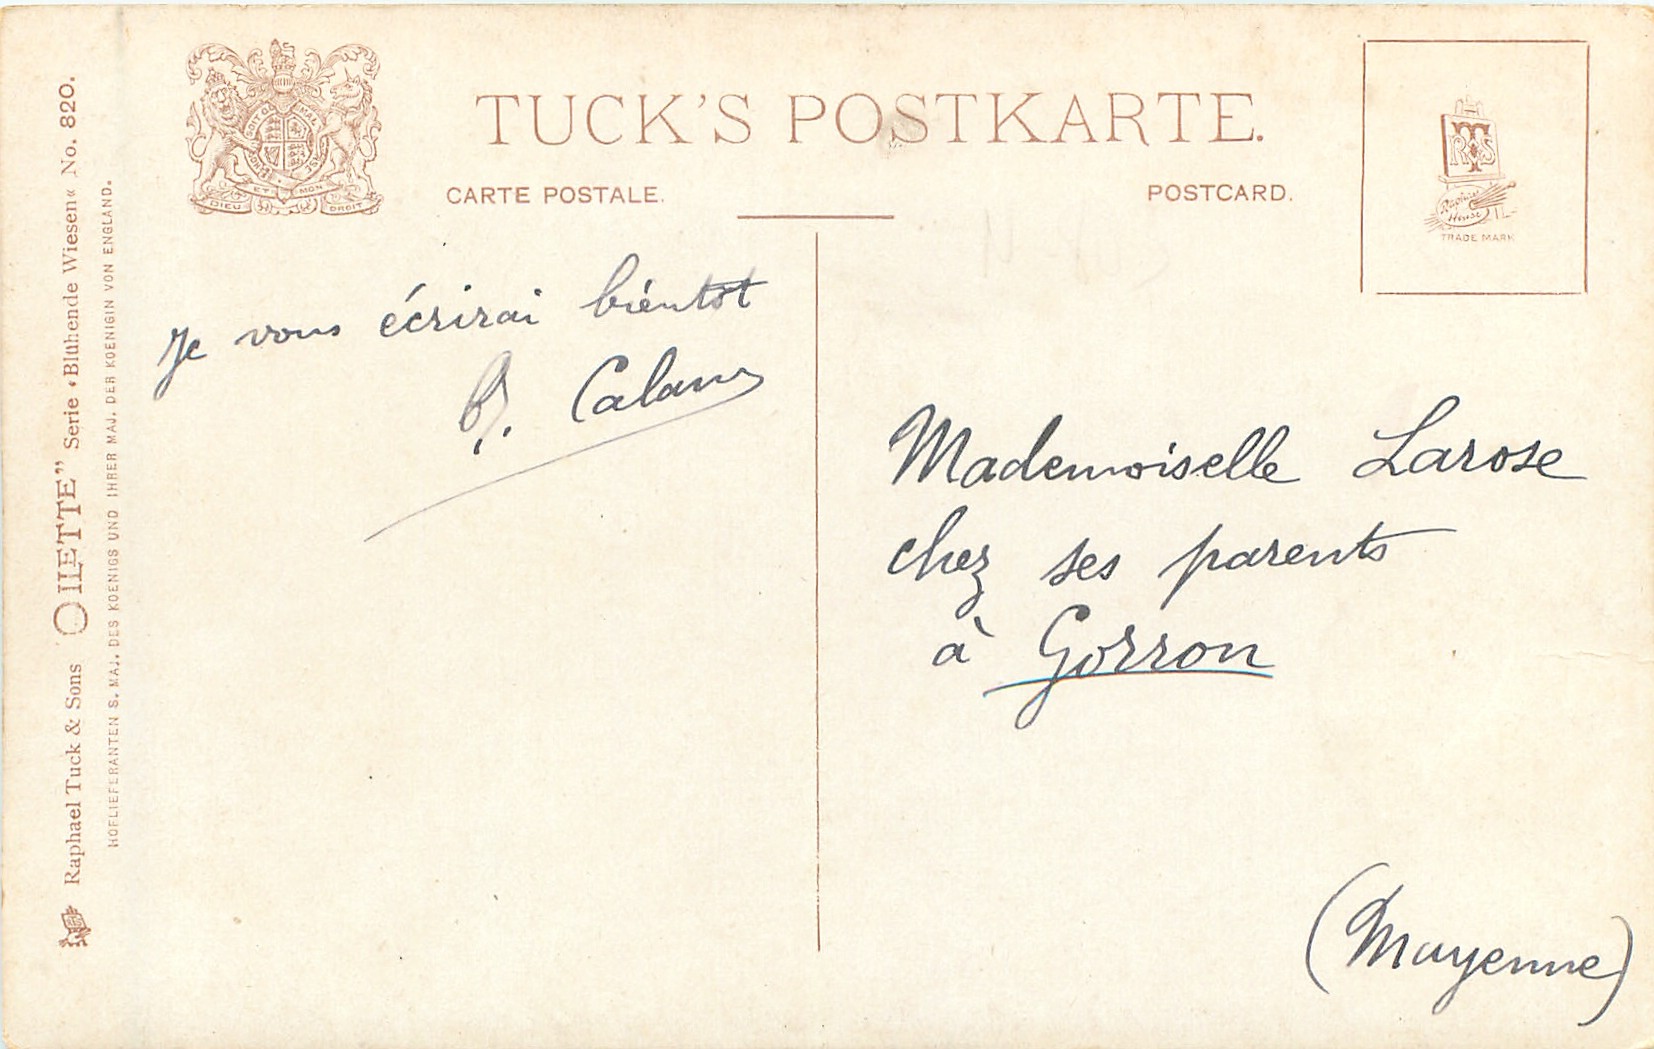 TUCK'S POSTKARTE.
CARTE POSTALE.
POSTCARD.
DIEU ET MON DROIT
TRADE MARK
Raphael Tuck & Sons "OILETTE" Serie »Blühende Wiesen« No. 820.
HOFLIEFERANTEN S. MAJ. DES KOENIGS UND IHRER MAJ. DER KOENIGIN VON ENGLAND.
Je vous écrirai bientôt
Mademoiselle Larose
chez ses parents
à Gorron
(Mayenne)